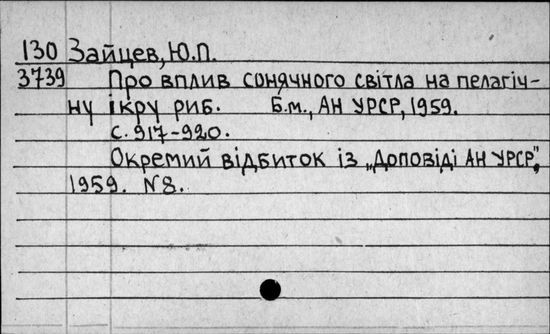 130 Зайцев, Ю.П.
3739 Про вплив сонячного світла на пелагіч-
ну ікру риб. Б.м., АН УРСР, 1959.
с. 917-920.
Окремий відбиток із „Доповіді АН УРСР",
1959. N8.